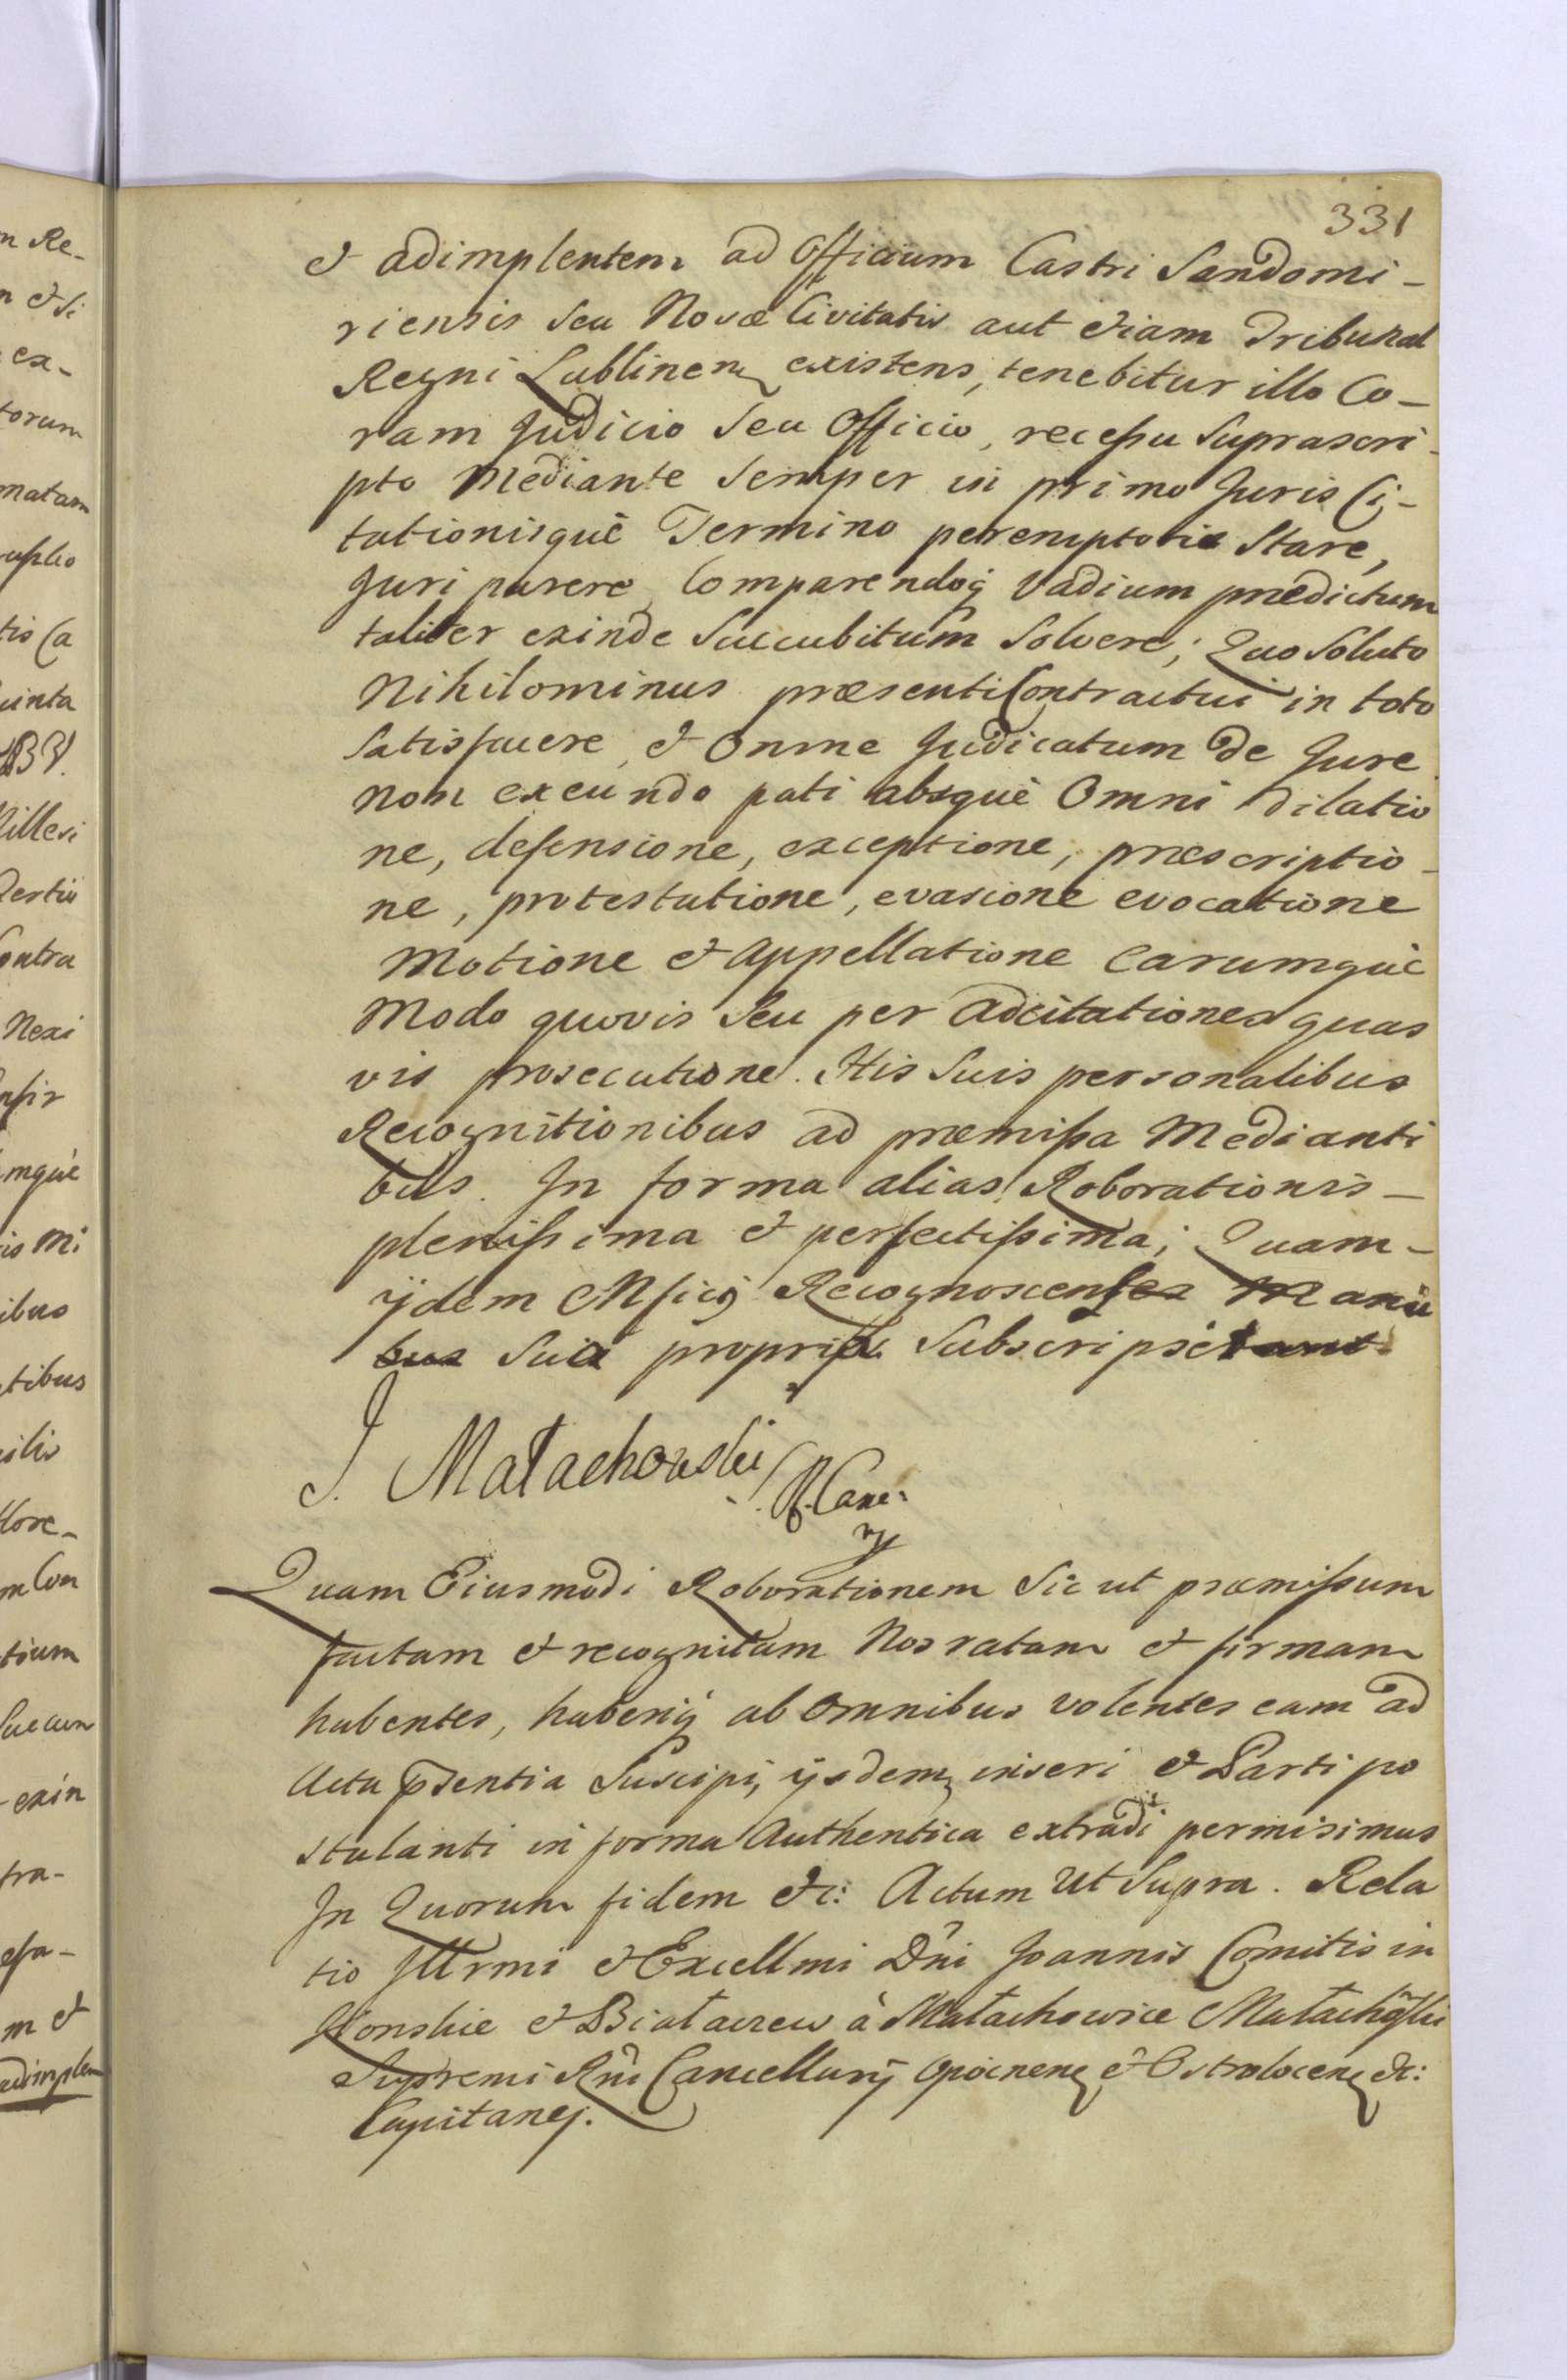 331
& adimplentem ad Officium Castri Sandomi-
riensis seu Novæ Civitatis aut etiam Tribunal
Regni Lublinen existens, tenebitur illo Co-
ram Judicio seu Officio, recessu suprascri-
pto Mediante semper in primo Juris Ci-
tationisquè Termino peremptorie Stare,
Juri parere Comparendoq Vadium prædictum
taliter exinde succubitum Solvere; Quo Soluto
Nihilominus præsenti Contractui in toto
Satisfacere, & Omne Judicatum de Jure
non exeundo pati absquè Omni dilatio
ne, defensione, exceptione, præscriptio-
ne, protestatione, evasione evocatione
Motione & Appellatione Earumquè
Modo quovis seu per Adcitationes quas
vis prosecutione. His Suis personalibus
Recognitionibus ad præmissa Medianti
bus. In forma alias Roborationis-
plenissima & perfectissima; Quam-
ijdem Recognoscens Manu
bus Sua propria Subscripsit
J. Małachowski Canc:
Quam Eiusmodi Roborationem Sic ut præmissum
factam & recognitam Nos ratam & firmam
habentes, haberiq ab Omnibus Volentes eam ad
Acta psentia Suscipi, ijsdemq inseri & Parti po
stulanti in forma Authentica extradi permisimus
In Quorum fidem &c: Actum Ut Supra. Rela
tio Illrmi & Excellmi Dni Joannis Comitis in
Końskie & Białaczew à Małachowice Małachowski
Supremi Rni Cancellarij Opocnen & Ostrolocen &c:
Capitanej.
n Re-
n & si
ex-
torum
matam
tis Ca
uinta
Millesi
Tertio
Contra
Nexi
mquè
is Mi
ibus
tibus
ilis
lore-
m Con
tium
Succum
exin
tra-
m &
adimplem